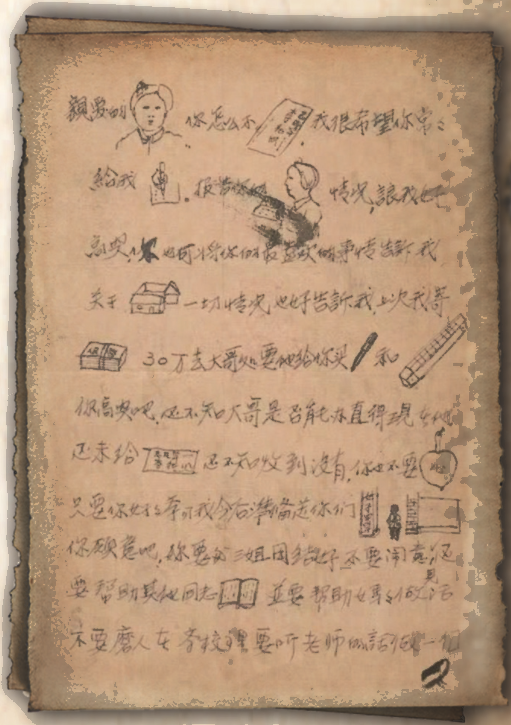 親愛的 你怎么不 我很希望你常々
給我 报告你的 情况,讓我好
高兴,你也可将你的最喜欢的事情告訴我
关于 一切情况也好告訴我,上次我寄
30万去大哥处要他給你买 和
你高兴吧,还不知大哥是否能办直得現在他
还未给 还不知收到没有,你也不要
只要你好好 我今后準备送你们
你願意吧,你要和三姐团结好不要闹意见还
要帮助其他同志 並要帮助 做活
不要磨人在 校裡要听老师的話 一個